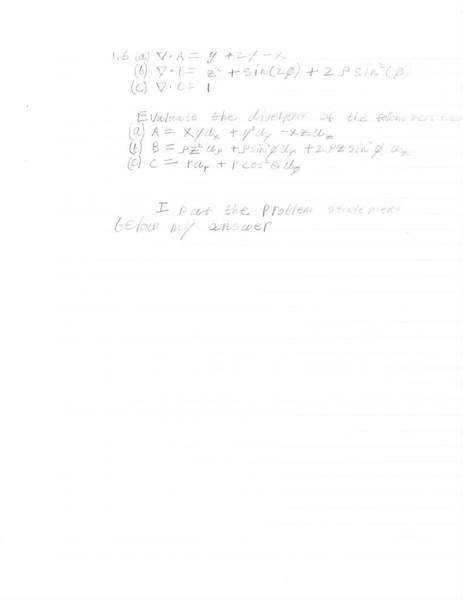 1.6 (a) ∇·A = y + 2y - x
(b) ∇·B = z² + sin(2φ) + 2ρsin²(φ
(c) ∇·C = 1
Evaluate the divergence of the
(a) A = xyaₓ + y²a_y - xza_z
(b) B = ρz²a_ρ + ρsin²φa_φ + 2ρzsin²φ a_z
(c) C = ra_r + rcos²θa_φ
I put the problem statement
below my answer